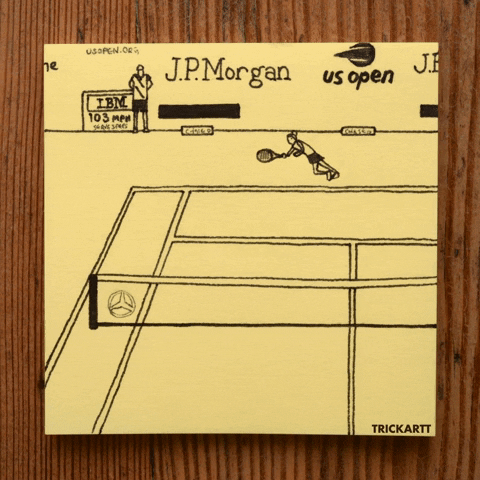 USOPEN.ORG
J.P.Morgan
us open
J.P
IBM
103 MPH
TRICKARTT